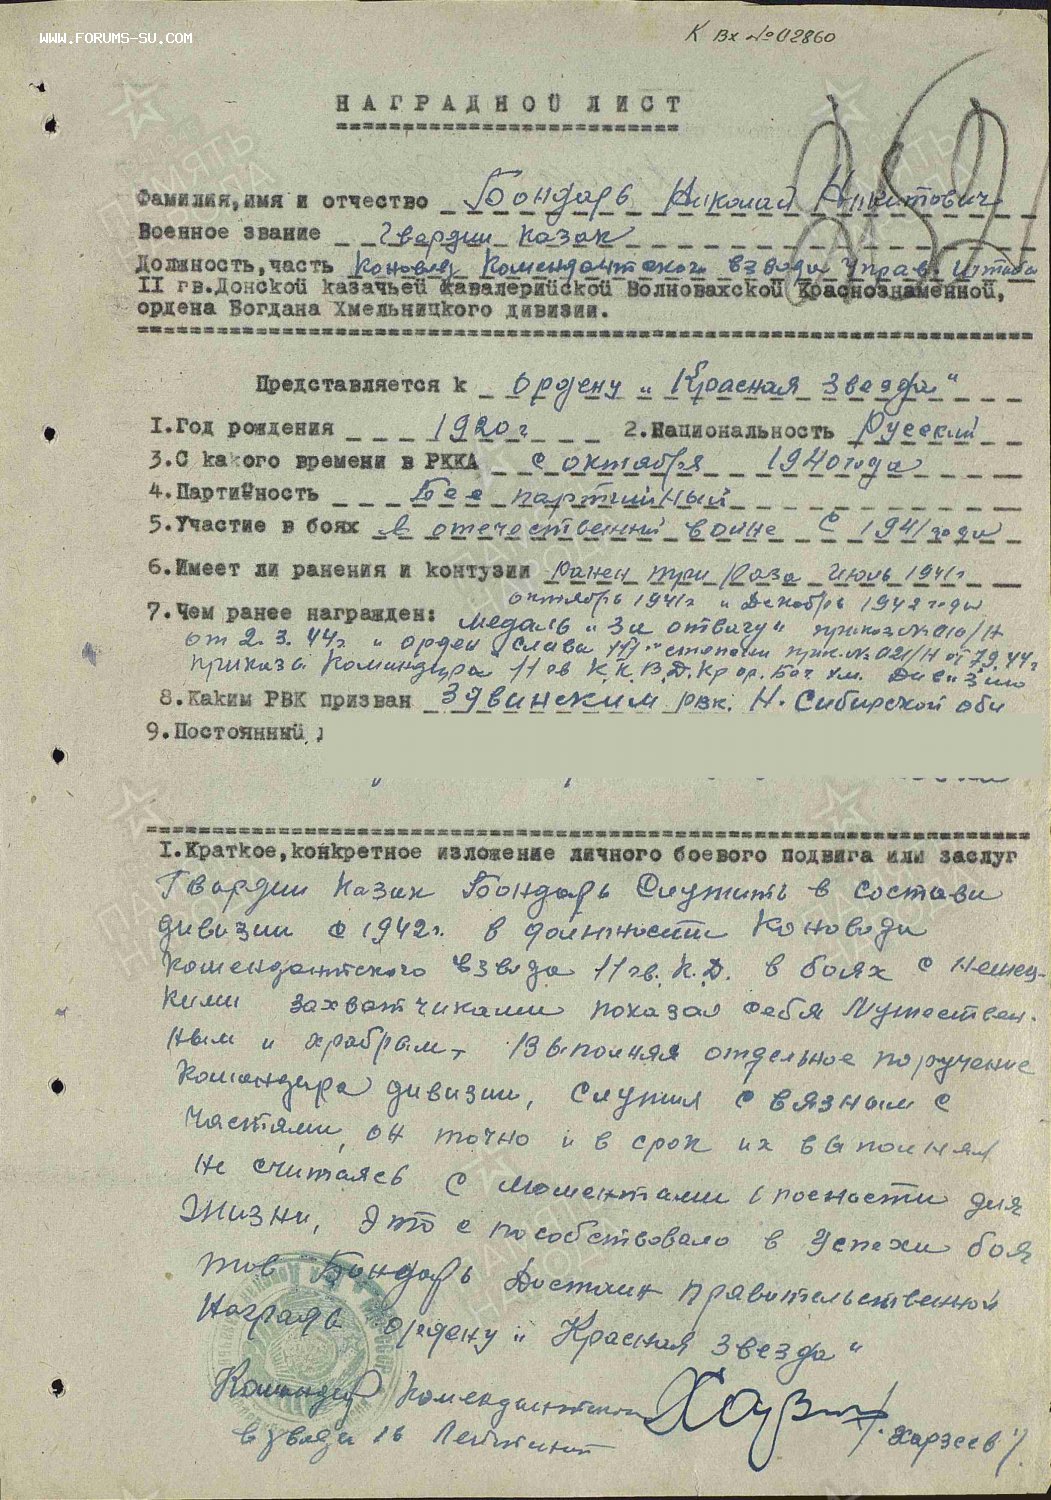 WWW.FORUMS-SU.COM
К Вх №02860
НАГРАДНОЙ ЛИСТ
Фамилия,имя и отчество Бондарь Николай Никитович
Военное звание Гвардии казак
Должность,часть Коновод Комендантского взвода Управ. Штаба
II гв.Донской казачьей Кавалерийской Волновахской Краснознаменной,
ордена Богдана Хмельницкого дивизии.
Представляется к ордену "Красная Звезда"
1.Год рождения 1920г 2.Национальность Русский
3.С какого времени в РККА с октября 1940 года
4.Партийность Без партийный
5.Участие в боях в отечественный войне с 1941 года
6.Имеет ли ранения и контузии Ранен три раза июль 1941г
октябрь 1941г и Декабрь 1942 года
7.Чем ранее награжден: медаль "За отвагу" приказ №010/Н
от 2.3.44г и орден Слава III степени прик.№021/Н от 7.9.44г
приказа Командира 11 гв К.К.В.Д.Кр ор. Бог Хм.
8.Каким РВК призван Здвинским рвк. Н-Сибирской обл
9.Постоянный
I.Краткое,конкретное изложение личного боевого подвига или заслуг
Гвардии казак Бондарь Служить в состави
дивизии с 1942г. в должности Коновода
Комендантского взвода 11 гв.К.Д. в боях с немец-
кими захватчиками показал себя Мужествен-
ным и храбрым, Выполняя отдельное поручение
Командира дивизии, Служил связным с
частями, он точно и в срок их выполнял
не считаясь с моментами опасности для
жизни, это способствовало в успехи боя
тов Бондарь Достоин правительственной
Награды ордену "Красная Звезда"
Командир комендантского
взвода гв Лейтенант /Харзеев/